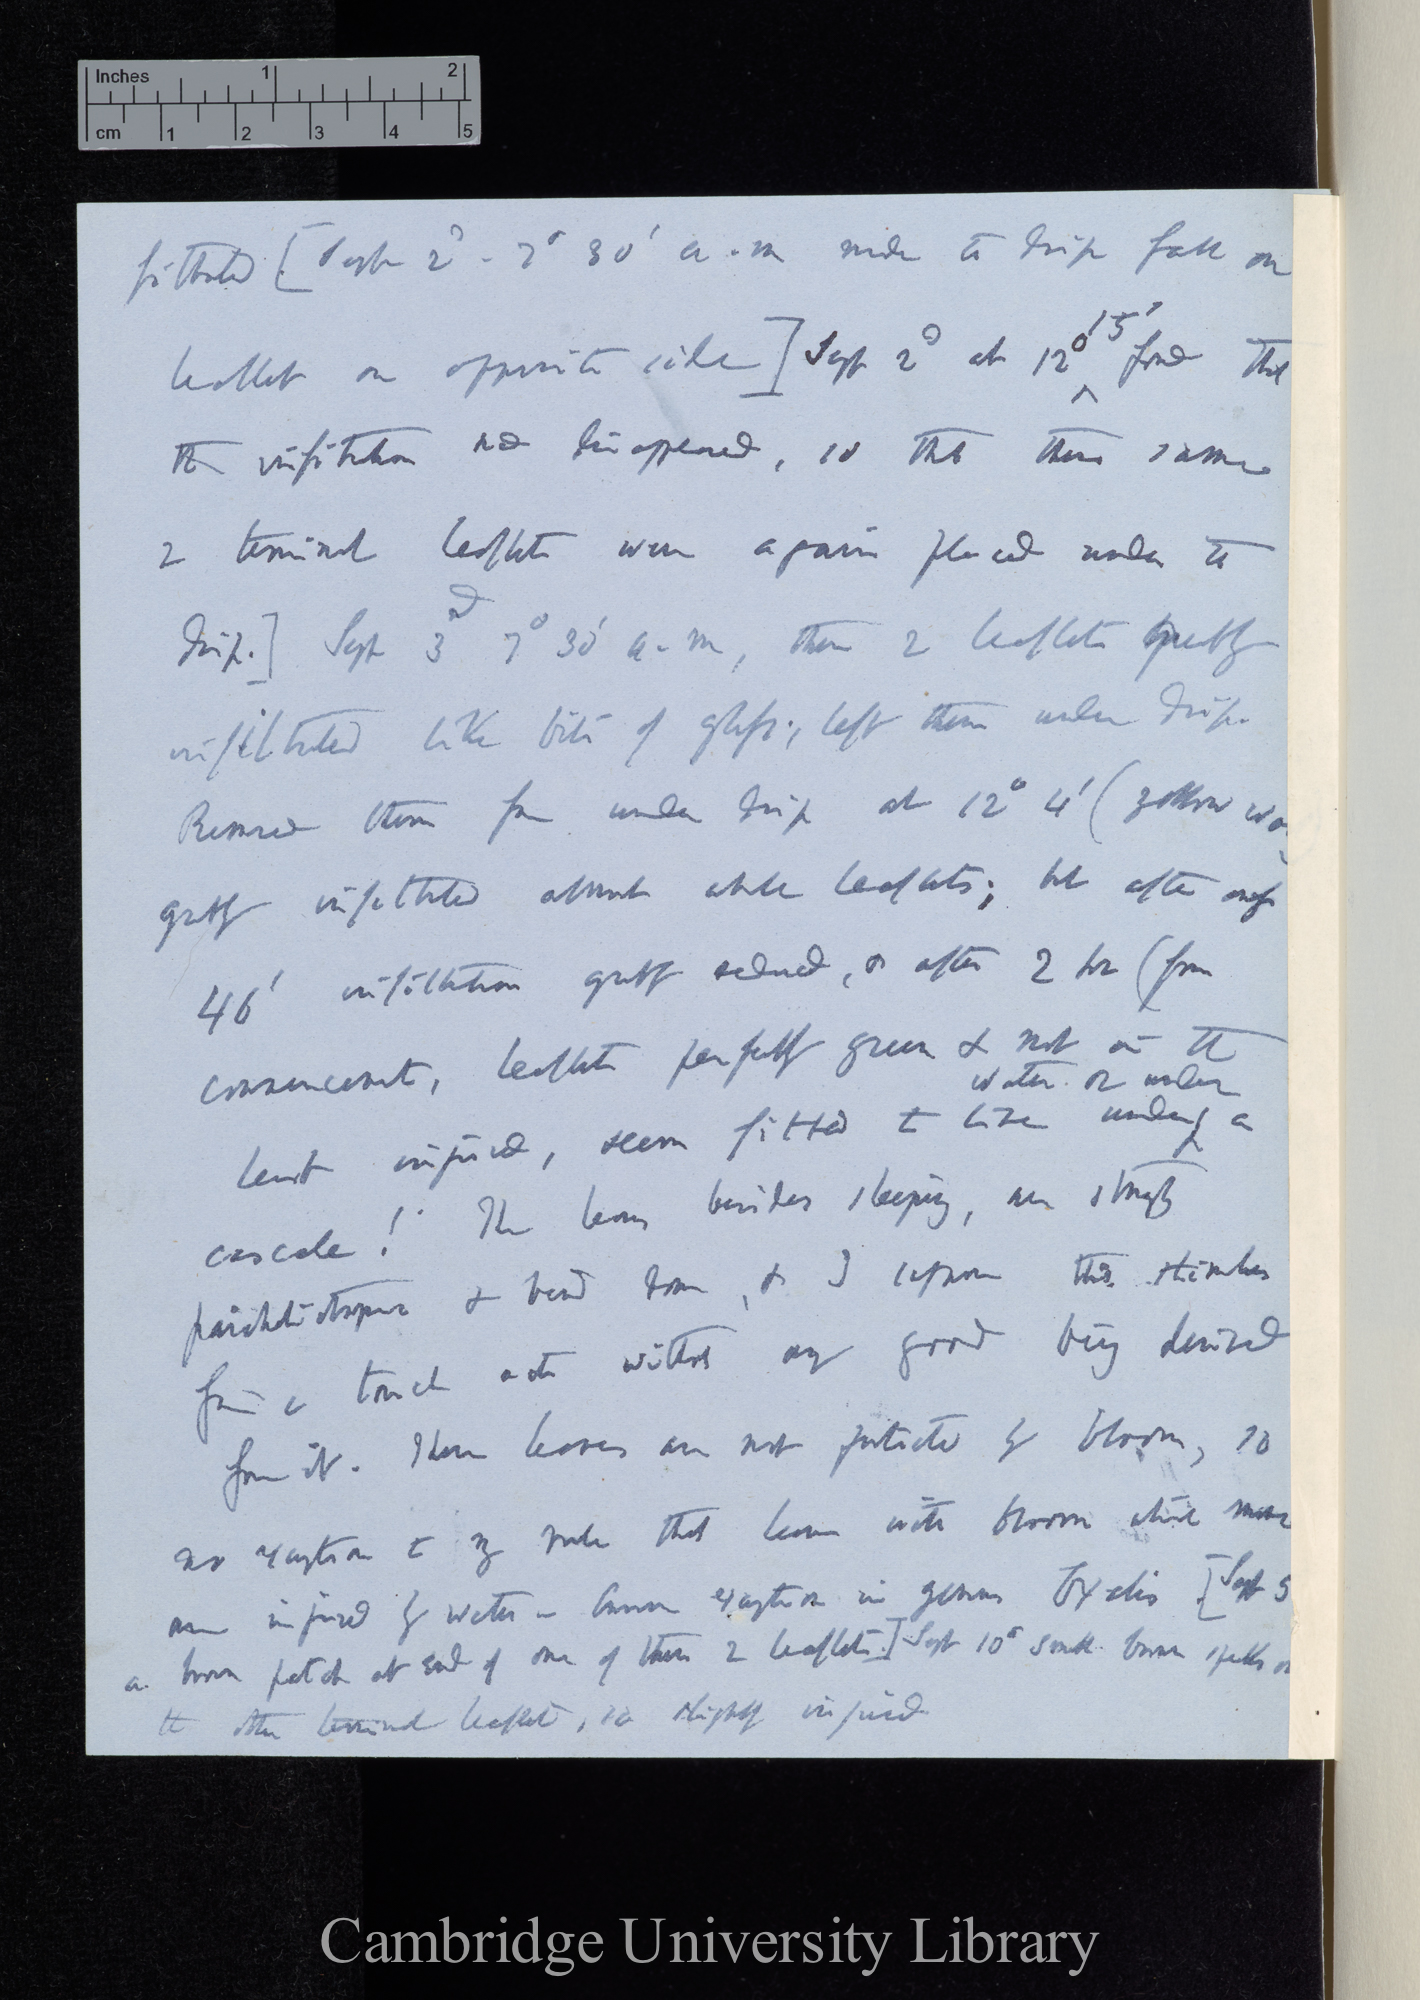 Inches 1 2
cm 1 2 3 4 5
filtrated [Sept 2d. 7° 30' a.m made the drip fall on
leaflet on opposite side] Sept 2d at 12° 15' found that
the infiltration had disappeared, so that these same
2 terminal leaflets were again placed under the
drip.] Sept 3rd 7° 30' a.m, these 2 leaflets greatly
infiltrated like bits of glass; left them under drip.
Removed them from under drip at 12° 4' (
greatly infiltrated almost whole leaflets; but after only
46' infiltration greatly reduced, & after 2 hrs (from
commencement, leaflets perfectly green & not in the
water or under
least injured, seem fitted to live under a
cascade! The leaves besides sleeping, are strongly
paraheliotropic & bend down, & I suppose this stimulus
from a touch acts without any good being derived
from it. These leaves are not protected by bloom, so
no exception to my rule that leaves with bloom which most
are injured by water — exception in genus Oxalis [Sept 5
a brown patch at end of one of these 2 leaflets] Sept 10th small brown specks on
the other terminal leaflet, so slightly injured.
Cambridge University Library